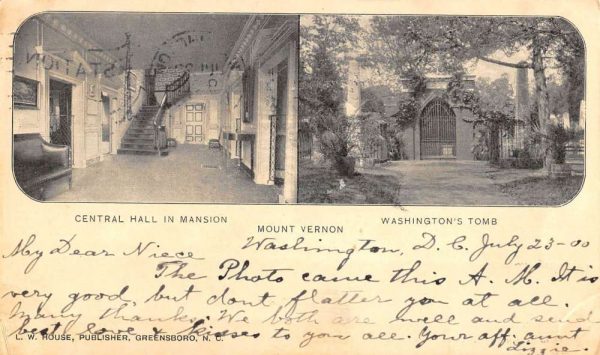 STATION
CENTRAL HALL IN MANSION
MOUNT VERNON
WASHINGTON'S TOMB
My Dear Niece Washington, D. C. July 23-00
The Photo came this A. M. It is
very good, but dont flatter you at all.
Many thanks. We both are well and send
best love & kisses to you all. Your aff. aunt
Lizzie.
L. W. HOUSE, PUBLISHER, GREENSBORO, N. C.